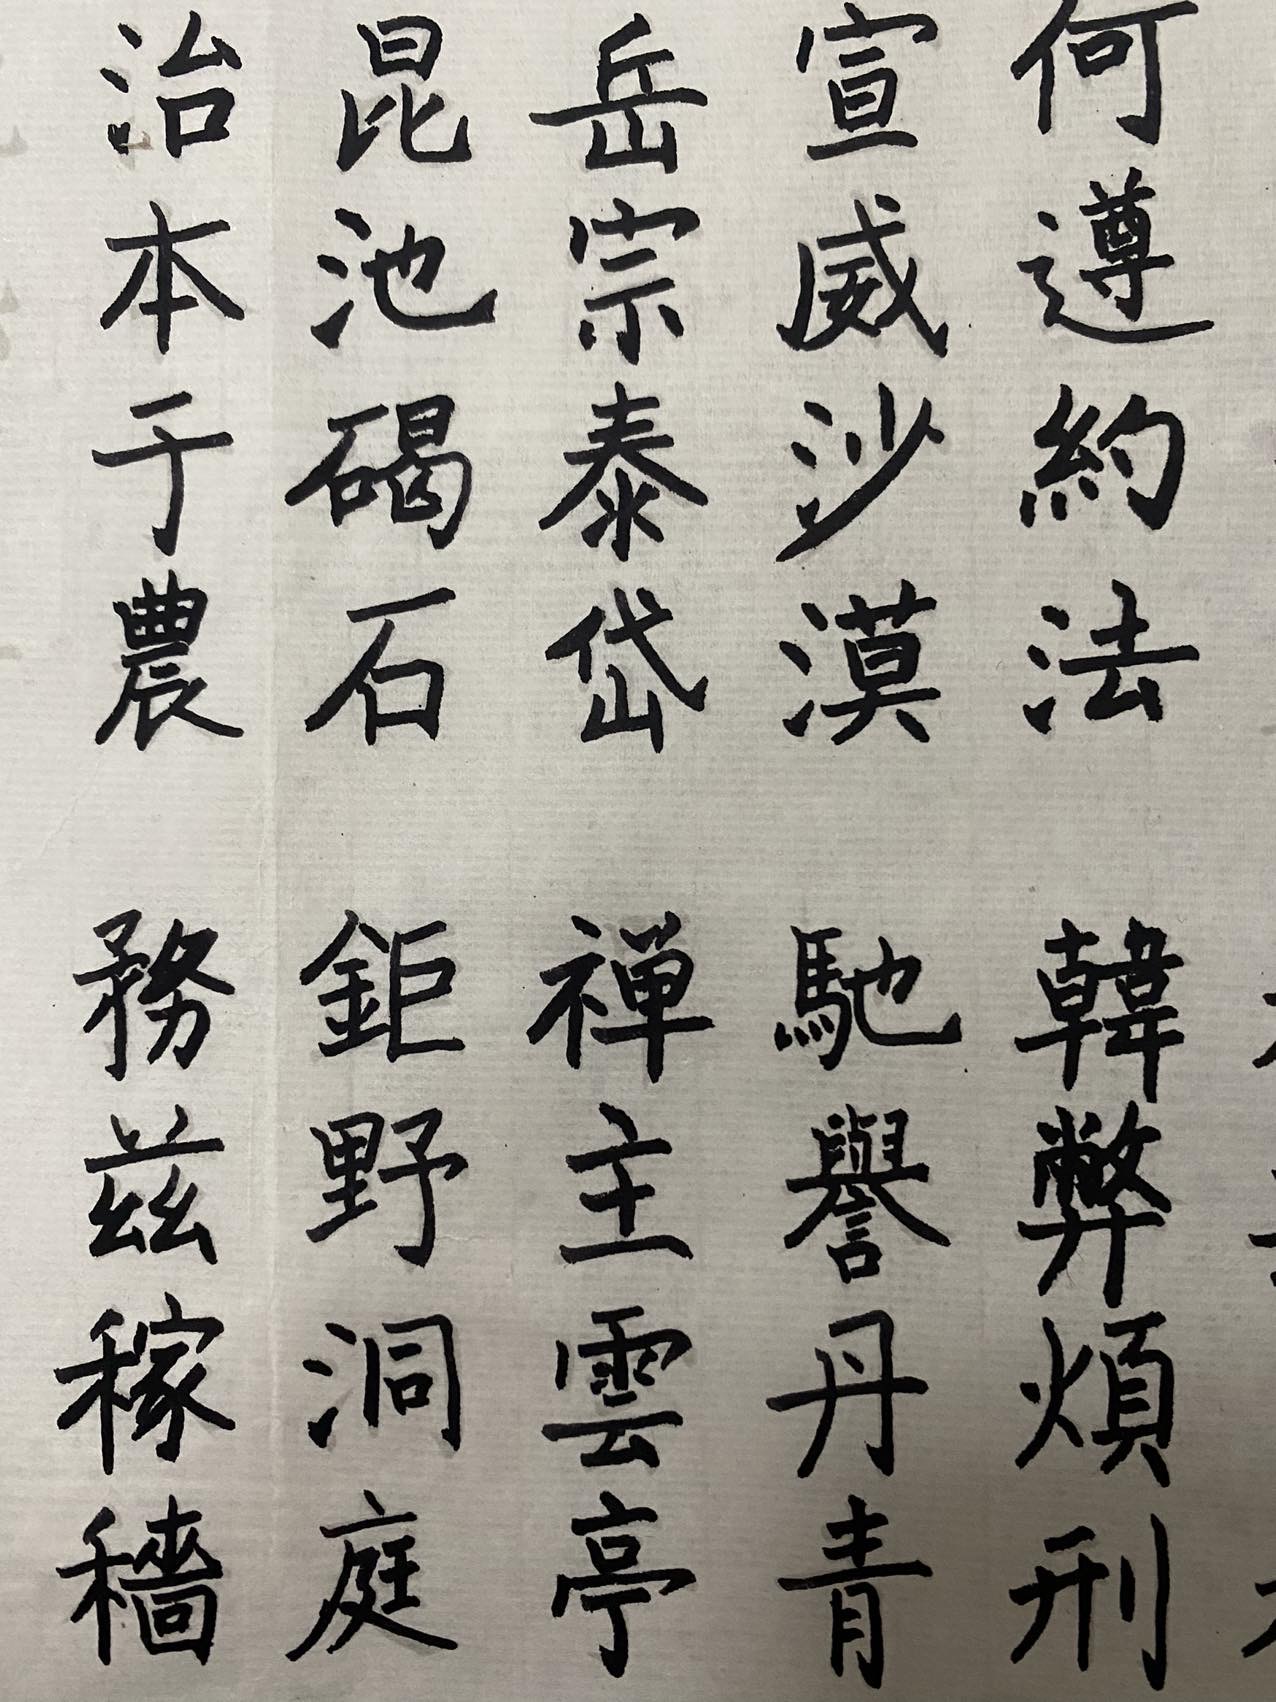 何遵約法 韓弊煩刑
宣威沙漠 馳譽丹青
岳宗泰岱 禅主雲亭
昆池碣石 鉅野洞庭
治本于農 務茲稼穡